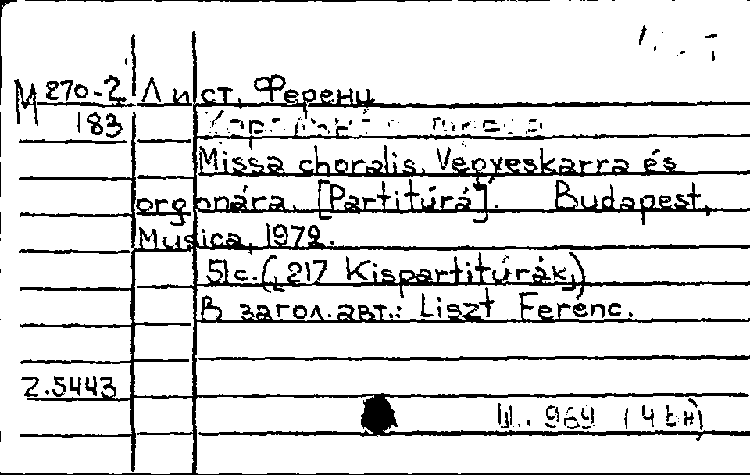 М 270-2 Лист, Ференц
183
Missa choralis. Vegyeskarra és
orgonára. [Partitúra]. Budapest,
Musica, 1972.
51с. („217 Kispartitúrák„)
В загол.авт.: Liszt Ferenc.
2.5443
969 (4